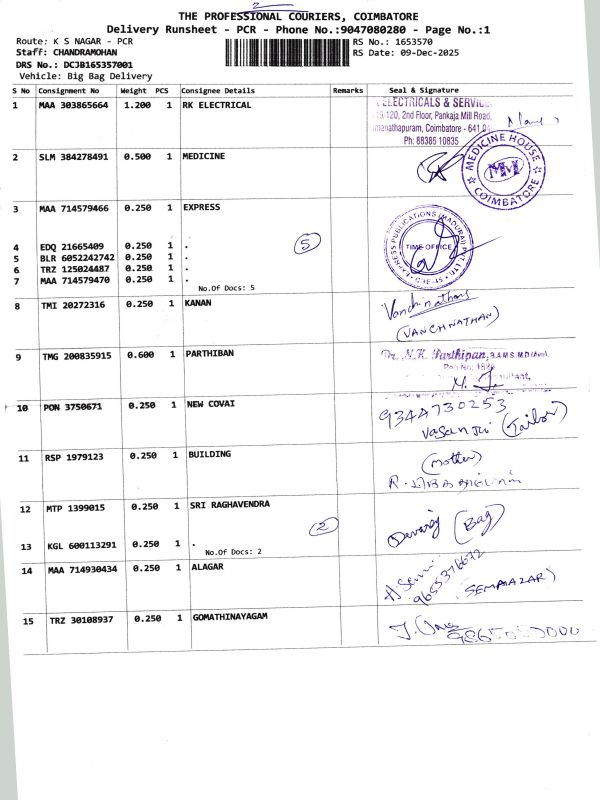 2
THE PROFESSIONAL COURIERS, COIMBATORE
Delivery Runsheet - PCR - Phone No.:9047080280 - Page No.:1
Route: K S NAGAR - PCR RS No.: 1653570
Staff: CHANDRAMOHAN RS Date: 09-Dec-2025
DRS No.: DCJB165357001
Vehicle: Big Bag Delivery
S No Consignment No Weight PCS Consignee Details Remarks Seal & Signature
1 MAA 303865664 1.200 1 RK ELECTRICAL
ELECTRICALS & SERVIC
120, 2nd Floor, Pankaja Mill Road,
manathapuram, Coimbatore - 641
Ph: 88385 10835
2 SLM 384278491 0.500 1 MEDICINE
MEDICINE HOUSE
MM
COIMBATORE
3 MAA 714579466 0.250 1 EXPRESS
EXPRESS PUBLICATIONS (MADURAI) PVT. LTD.
TIME OFFICE
4 EDQ 21665409 0.250 1 .
5
5 BLR 6052242742 0.250 1 .
6 TRZ 125024487 0.250 1 .
7 MAA 714579470 0.250 1 .
No.Of Docs: 5
8 TMI 20272316 0.250 1 KANAN
Vanchinathan
(VANCHNATHAN)
9 TMG 200835915 0.600 1 PARTHIBAN
Dr. N.K. Parthipan, B.A.M.S. M.D(Avu)
10 PON 3750671 0.250 1 NEW COVAI
9344730253
(Tailor)
11 RSP 1979123 0.250 1 BUILDING
(Mother)
12 MTP 1399015 0.250 1 SRI RAGHAVENDRA
2
Devaraj (Bag)
13 KGL 600113291 0.250 1 .
No.Of Docs: 2
14 MAA 714930434 0.250 1 ALAGAR
15 TRZ 30108937 0.250 1 GOMATHINAYAGAM